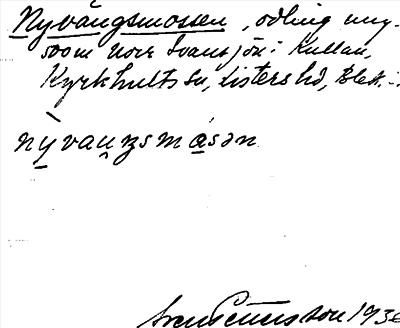 Nyvångsmossen, odling ny-
som norr Svansjön i Kullan,
Kyrkhults sn, Listers hd, Blek.
nỳvaṵŋsmåsən
Sven Petersson 193